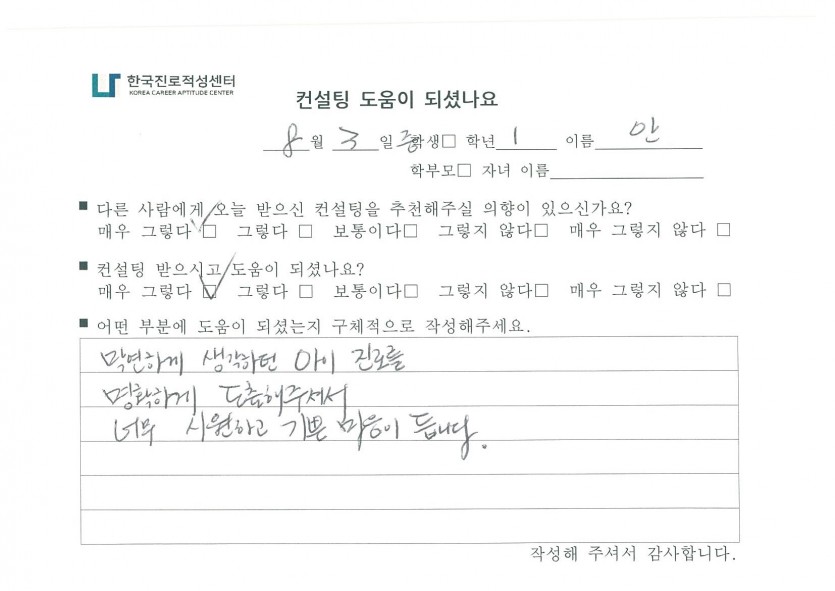 한국진로적성센터
KOREA CAREER APTITUDE CENTER
컨설팅 도움이 되셨나요
8월 3일 중학생□ 학년 1 이름 안
학부모□ 자녀 이름
■ 다른 사람에게 오늘 받으신 컨설팅을 추천해주실 의향이 있으신가요?
매우 그렇다 ☑ 그렇다 □ 보통이다□ 그렇지 않다□ 매우 그렇지 않다 □
■ 컨설팅 받으시고 도움이 되셨나요?
매우 그렇다 ☑ 그렇다 □ 보통이다□ 그렇지 않다□ 매우 그렇지 않다 □
■ 어떤 부분에 도움이 되셨는지 구체적으로 작성해주세요.
막연하게 생각하던 아이 진로를
명확하게 도출해주셔서
너무 시원하고 기쁜 마음이 듭니다.
작성해 주셔서 감사합니다.